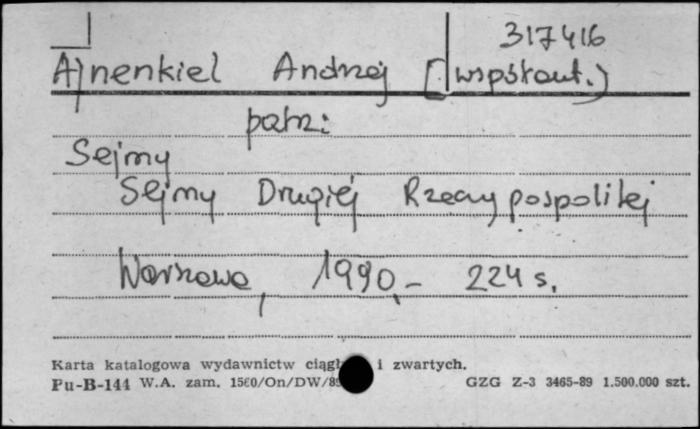 317416
Ajnenkiel Andrzej (współaut.)
patrz:
Sejmy
Sejmy Drugiej Rzeczypospolitej
Warszawa, 1990.- 224 s.
Karta katalogowa wydawnictw ciągł i zwartych.
Pu-B-144 W.A. zam. 1560/On/DW/89 GZG Z-3 3465-89 1.500.000 szt.